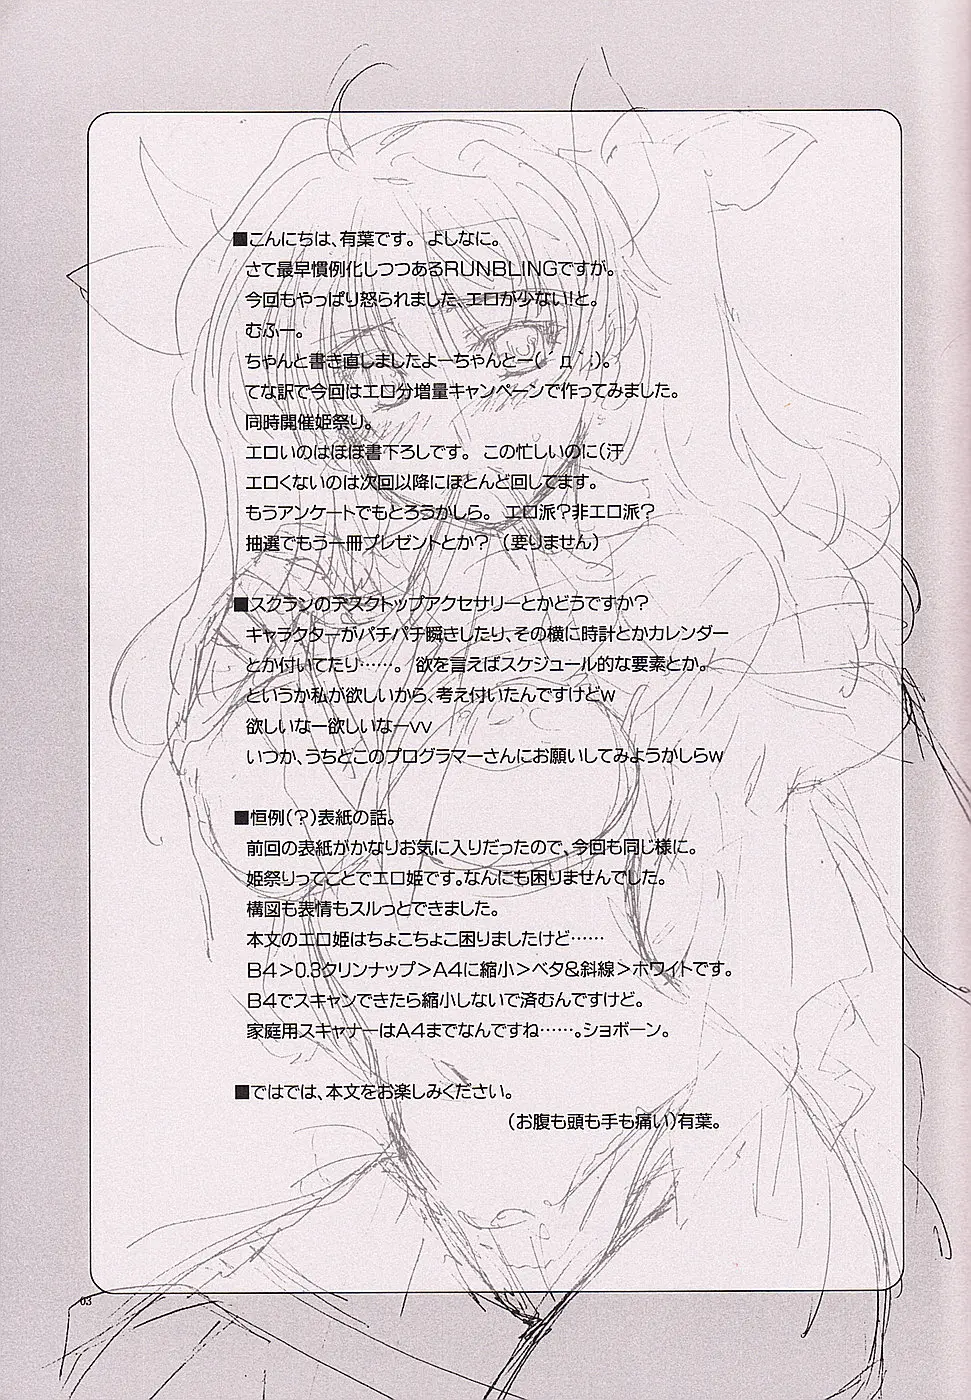 ■こんにちは、有葉です。 よしなに。
さて最早慣例化しつつあるRUNBLINGですが。
今回もやっぱり怒られました、エロが少ない！と。
むふー。
ちゃんと書き直しましたよーちゃんとー(；´д｀；)。
てな訳で今回はエロ分増量キャンペーンで作ってみました。
同時開催姫祭り。
エロいのはほぼ書下ろしです。 この忙しいのに(汗
エロくないのは次回以降にほとんど回してます。
もうアンケートでもとろうかしら。 エロ派？非エロ派？
抽選でもう一冊プレゼントとか？ (要りません)
■スクランのデスクトップアクセサリーとかどうですか？
キャラクターがパチパチ瞬きしたり、その横に時計とかカレンダー
とか付いてたり……。 欲を言えばスケジュール的な要素とか。
というか私が欲しいから、考え付いたんですけどw
欲しいなー欲しいなーvv
いつか、うちとこのプログラマーさんにお願いしてみようかしらw
■恒例(？)表紙の話。
前回の表紙がかなりお気に入りだったので、今回も同じ様に。
姫祭りってことでエロ姫です。なんにも困りませんでした。
構図も表情もスルっとできました。
本文のエロ姫はちょこちょこ困りましたけど……
B4>0.3クリンナップ>A4に縮小>ベタ&斜線>ホワイトです。
B4でスキャンできたら縮小しないで済むんですけど。
家庭用スキャナーはA4までなんですね……。ショボーン。
■ではでは、本文をお楽しみください。
(お腹も頭も手も痛い)有葉。
03